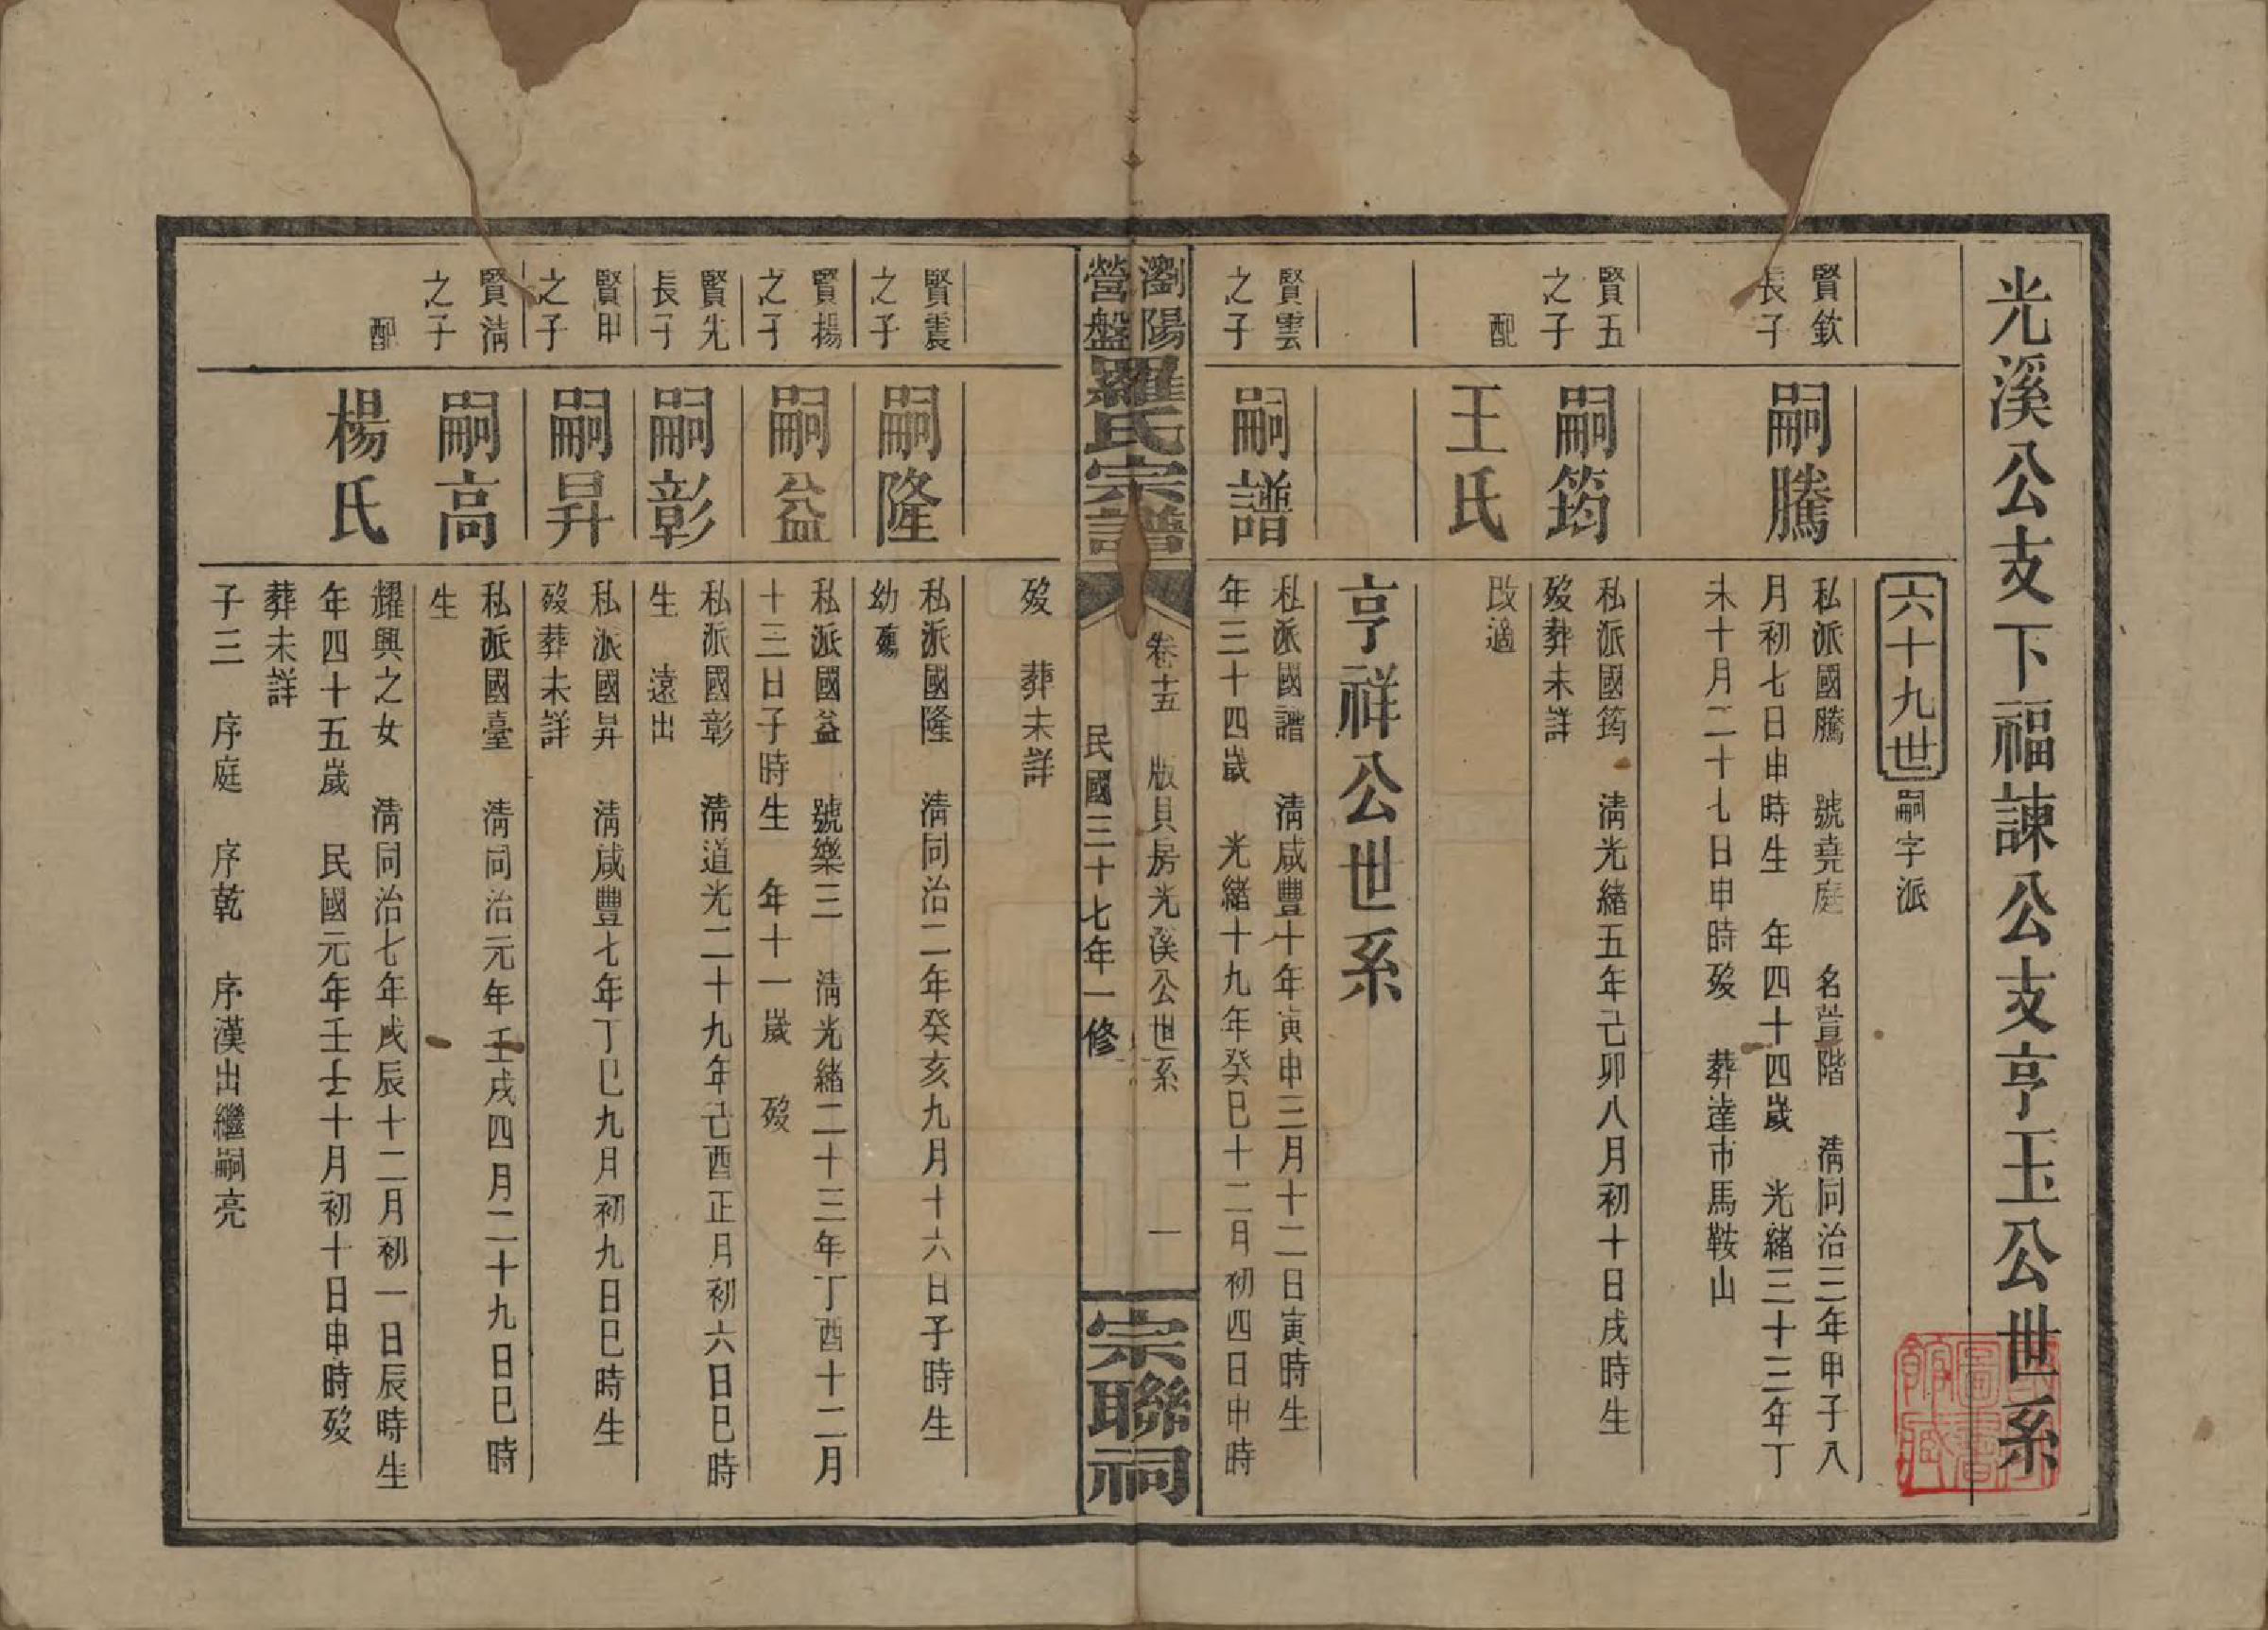 光溪公支下福諫公支亨玉公世系
六十九世 嗣字派
賢欽
長子
嗣騰
私派國騰 號堯庭 名萱階 淸同治三年甲子八
月初七日申時生 年四十四歲 光緒三十三年丁
未十月二十七日申時歿 葬達市馬鞍山
賢五
之子
嗣筠
私派國筠 淸光緒五年己卯八月初十日戌時生
歿葬未詳
配
王氏
改適
亨祥公世系
賢雲
之子
嗣譜
私派國譜 淸咸豐十年寅申三月十二日寅時生
年三十四歲 光緒十九年癸巳十二月初四日申時
瀏陽
營盤
羅氏宗譜
卷十五 版貝房光溪公世系 一
民國三十七年一修
宗聯祠
歿 葬未詳
賢震
之子
嗣隆
私派國隆 淸同治二年癸亥九月十六日子時生
幼殤
賢揚
之子
嗣益
私派國益 號樂三 淸光緒二十三年丁酉十二月
十三日子時生 年十一歲 歿
賢先
長子
嗣彰
私派國彰 淸道光二十九年己酉正月初六日巳時
生 遠出
賢甲
之子
嗣昇
私派國昇 淸咸豐七年丁巳九月初九日巳時生
歿葬未詳
賢淸
之子
嗣高
私派國臺 淸同治元年壬戌四月二十九日巳時
生
配
楊氏
耀興之女 淸同治七年戊辰十二月初一日辰時生
年四十五歲 民國元年壬子十月初十日申時歿
葬未詳
子三 序庭 序乾 序漢出繼嗣亮